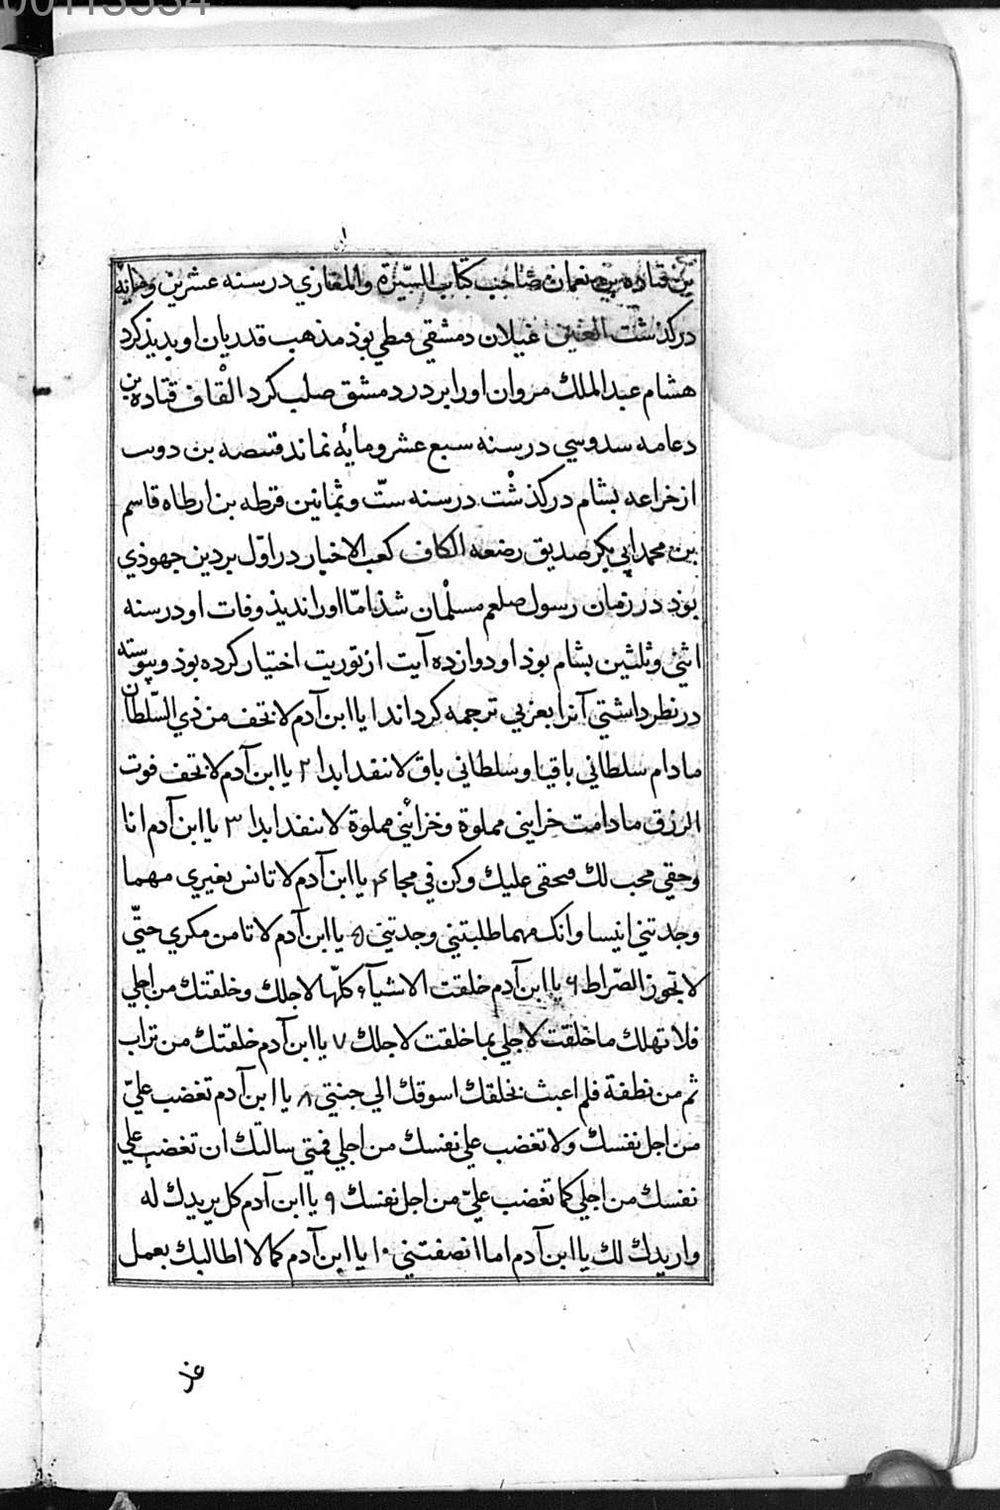 00113534
بن قتاده بن نعمان صاحب كتاب السّيرة والمغازي در سنه عشرين ومايه
در كذشت الغين غيلان دمشقي قبطي بوذ مذهب قدريان او بديذ كرد
هشام عبد الملك مروان اورا بر در دمشق صلب كرد القاف قتاده بن
دعامه سدوسي در سنه سبع عشر ومايه نماند قبيصه بن دويب
از خزاعه بشام در كذشت در سنه ستّ وثمانين قرطه بن ارطاه قاسم
بن محمد ابي بكر صديق رضعه الكاف كعب الاخبار در اوّل بر دين جهوذي
بوذ در زمان رسول صلعم مسلمان شذ امّا اورا نديذ وفات او در سنه
اثني وثلثين بشام بوذ او دوازده آيت از توريت اختيار كرده بوذ وپيوسته
در نظر داشتي آنرا بعربي ترجمه كرده اند ا يا ابن آدم لا تخف من ذي السّلطان
ما دام سلطاني باقيا وسلطاني باق لا ننفد ابدا ٢ يا ابن آدم لا تخف فوت
الرزق ما دامت خزايني مملوة وخزائني مملوة لا ننفد ابدا ٣ يا ابن آدم انا
وحقي محب لك فبحقي عليك وكن في محبا ۴ يا ابن آدم لا تانس بغيري مهما
وجدتني انيسا وانك مهما طلبتني وجدتني ۵ يا ابن آدم لا تامن مكري حتّي
لا تجوز الصّراط ۶ يا ابن آدم خلقت الاشيآء كلّها لاجلك وخلقتك من اجلي
فلا تهلك ما خلقت لاجلي بما خلقت لاجلك ٧ يا ابن آدم خلقتك من تراب
ثم من نطفة فلم اعبث بخلقك اسوقك الي جنتي ٨ يا ابن آدم تغضب عليّ
من اجل نفسك ولا تغضب علي نفسك من اجلي فمتي سالتك ان تغضب علي
نفسك من اجلي كما تغضب عليّ من اجل نفسك ٩ يا ابن آدم كل يريدك له
واريدك لك يا ابن آدم اما انصفتني ١٠ يا ابن آدم كما لا اطالبك بعمل
غد